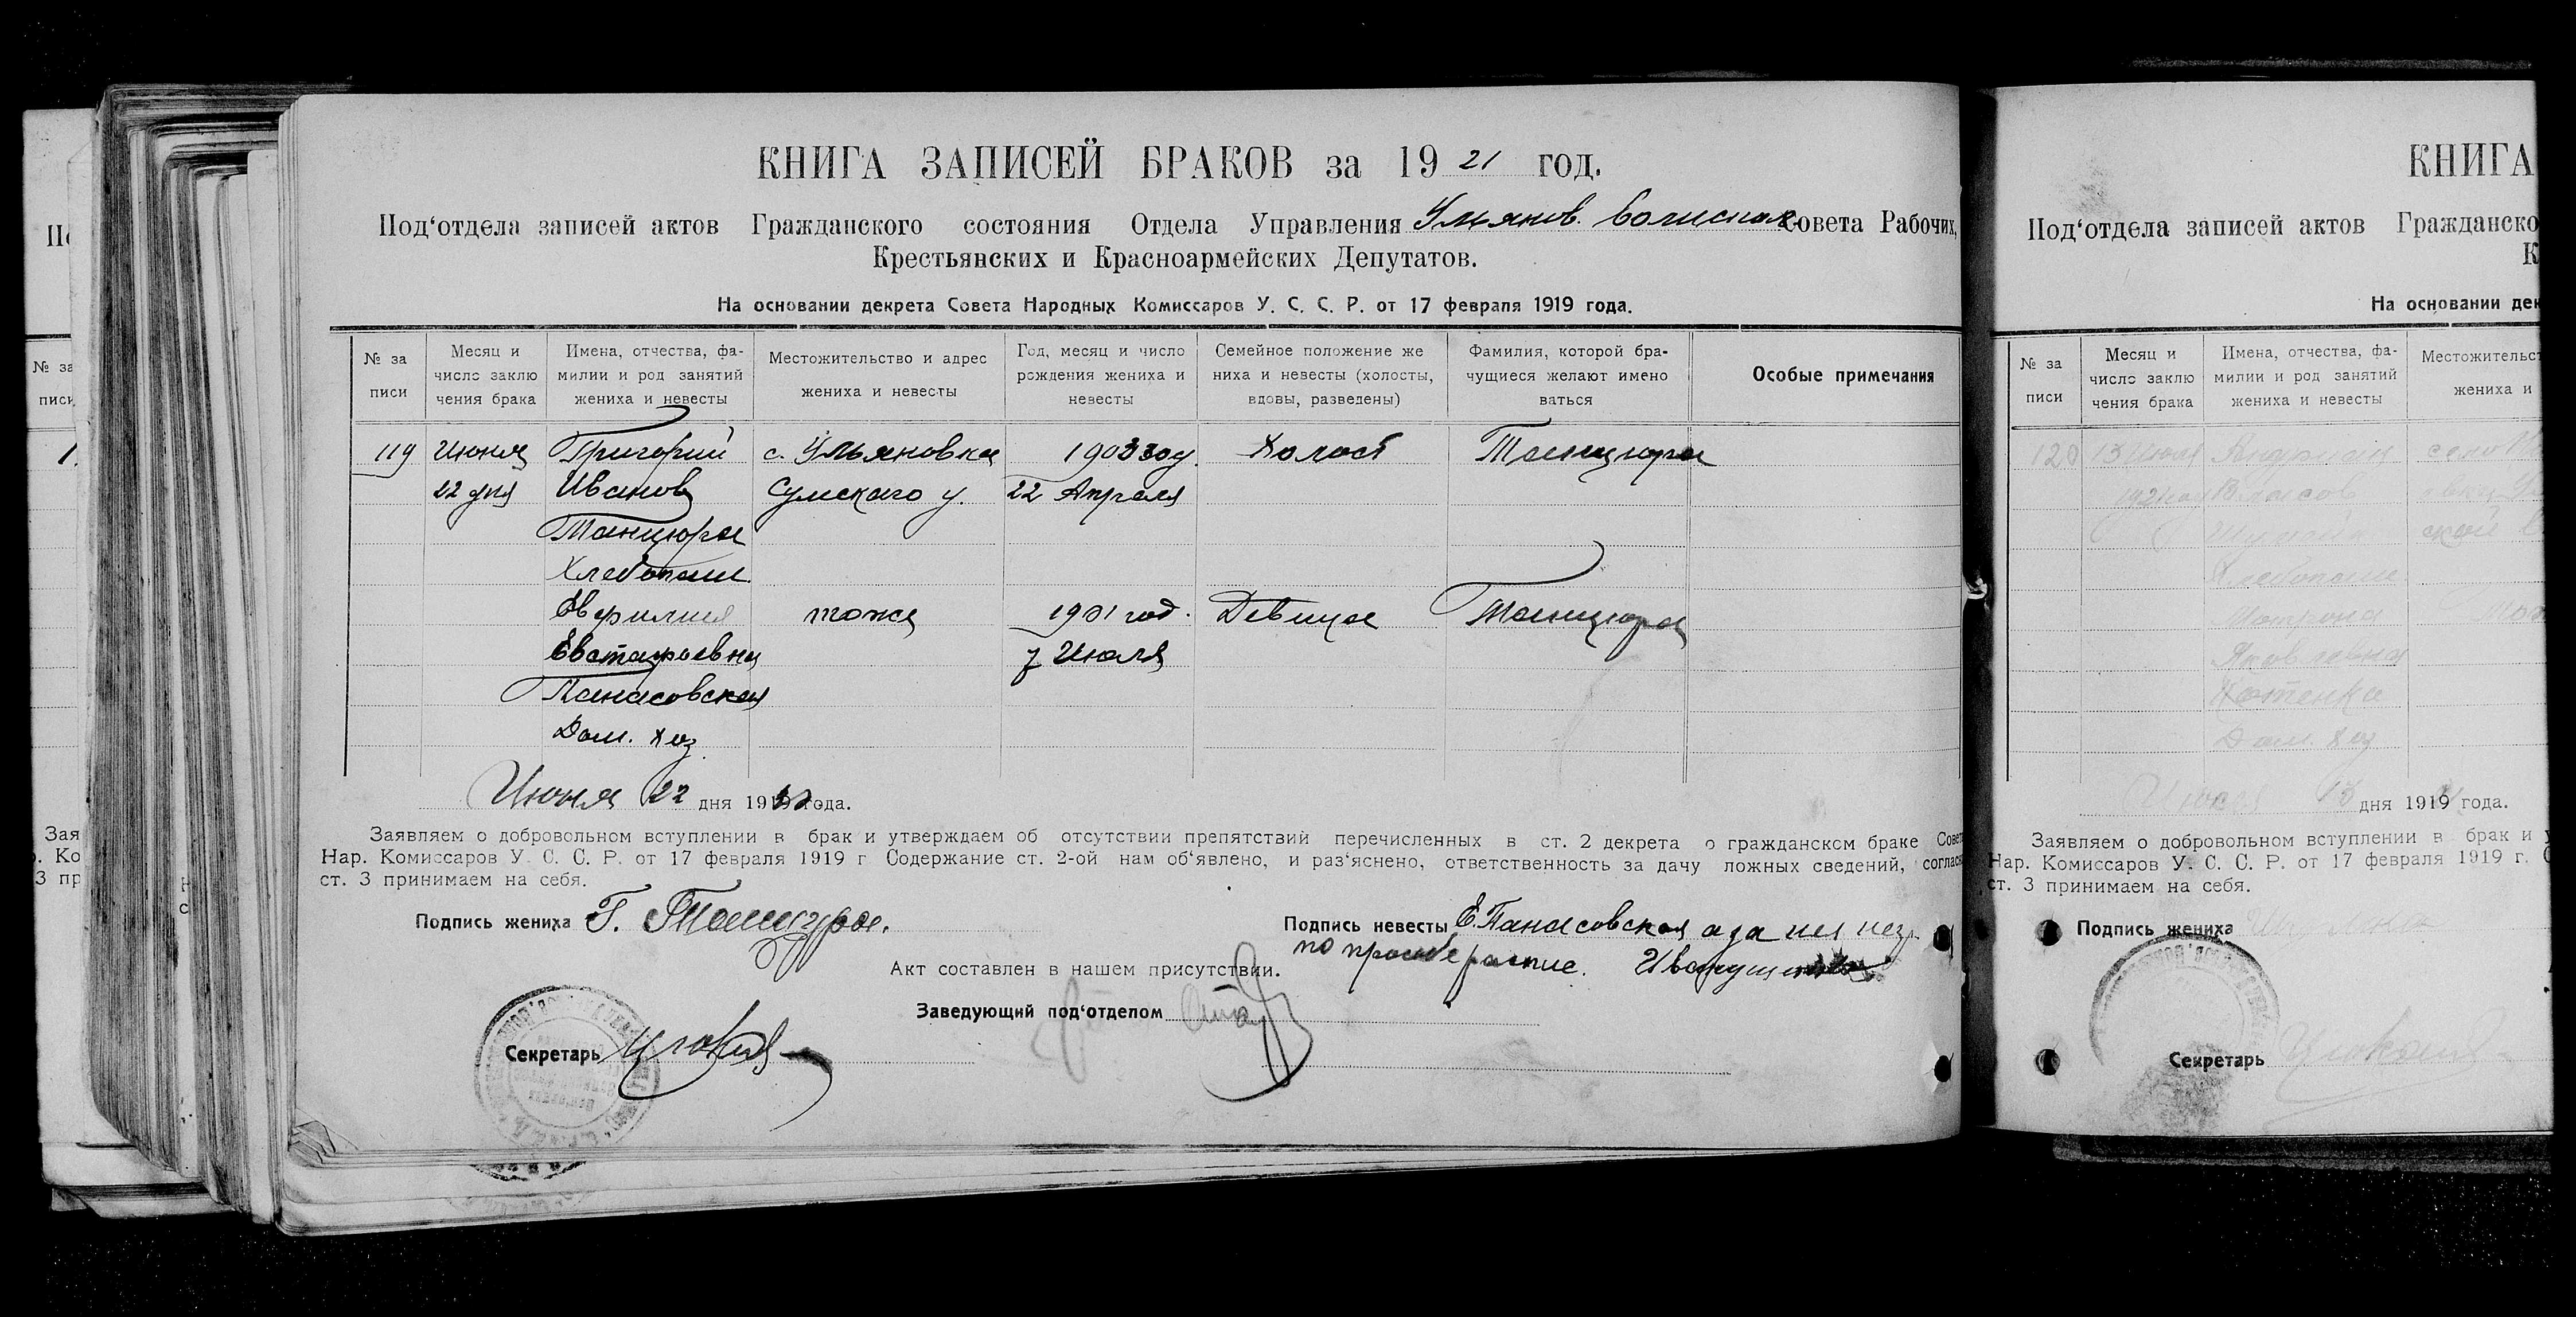 КНИГА ЗАПИСЕЙ БРАКОВ за 19 21 год.
Под‘отдела записей актов Гражданского состояния Отдела Управления Ульянов. волиспол. Совета Рабочих,
Крестьянских и Красноармейских Депутатов.
На основании декрета Совета Народных Комиссаров У. С. С. Р. от 17 февраля 1919 года.
№ за
писи
Месяц и
число заклю
чения брака
Имена, отчества, фа-
милии и род занятий
жениха и невесты
Местожительство и адрес
жениха и невесты
Год, месяц и число
рождения жениха и
невесты
Семейное положение же
ниха и невесты (холосты,
вдовы, разведены)
Фамилия, которой бра-
чущиеся желают имено
ваться
Особые примечания
119 Июня Григорий с. Ульяновка 1903 году Холост Танцюра
22 дня Иванов Сумскаго у. 22 Апреля
Танцюра
Хлебопаш.
Евфимия тоже 1901 год. Девица Танцюра
Евстафьевна 7 Июля
Панасовская
Дом. хоз
Июня 22 дня 19 года.
Заявляем о добровольном вступлении в брак и утверждаем об отсутствии препятствий перечисленных в ст. 2 декрета о гражданском браке Сове
Нар. Комиссаров У. С. С. Р. от 17 февраля 1919 г Содержание ст. 2-ой нам об‘явлено, и раз‘яснено, ответственность за дачу ложных сведений, соглас
ст. 3 принимаем на себя.
Подпись жениха Г. Танцура.
Подпись невесты Е. Панасовская а за нея нег.
по просьбе распис.
Акт составлен в нашем присутствии.
Заведующий под‘отделом
Секретарь
КНИГА
Под‘отдела записей актов Гражданско
К
На основании дек
№ за
писи
Месяц и
число заклю
чения брака
Имена, отчества, фа-
милии и род занятий
жениха и невесты
Местожительст
жениха и
120 13 Июля село
Власов
Хлебопаш
Яковлевна
Котенко
Дом. хоз
Июля 13 дня 1919 года.
Заявляем о добровольном вступлении в брак и у
Нар. Комиссаров У. С. С. Р. от 17 февраля 1919 г. С
ст. 3 принимаем на себя.
Подпись жениха
Секретарь
№ за
писи
Зая
. Ко
3 пр